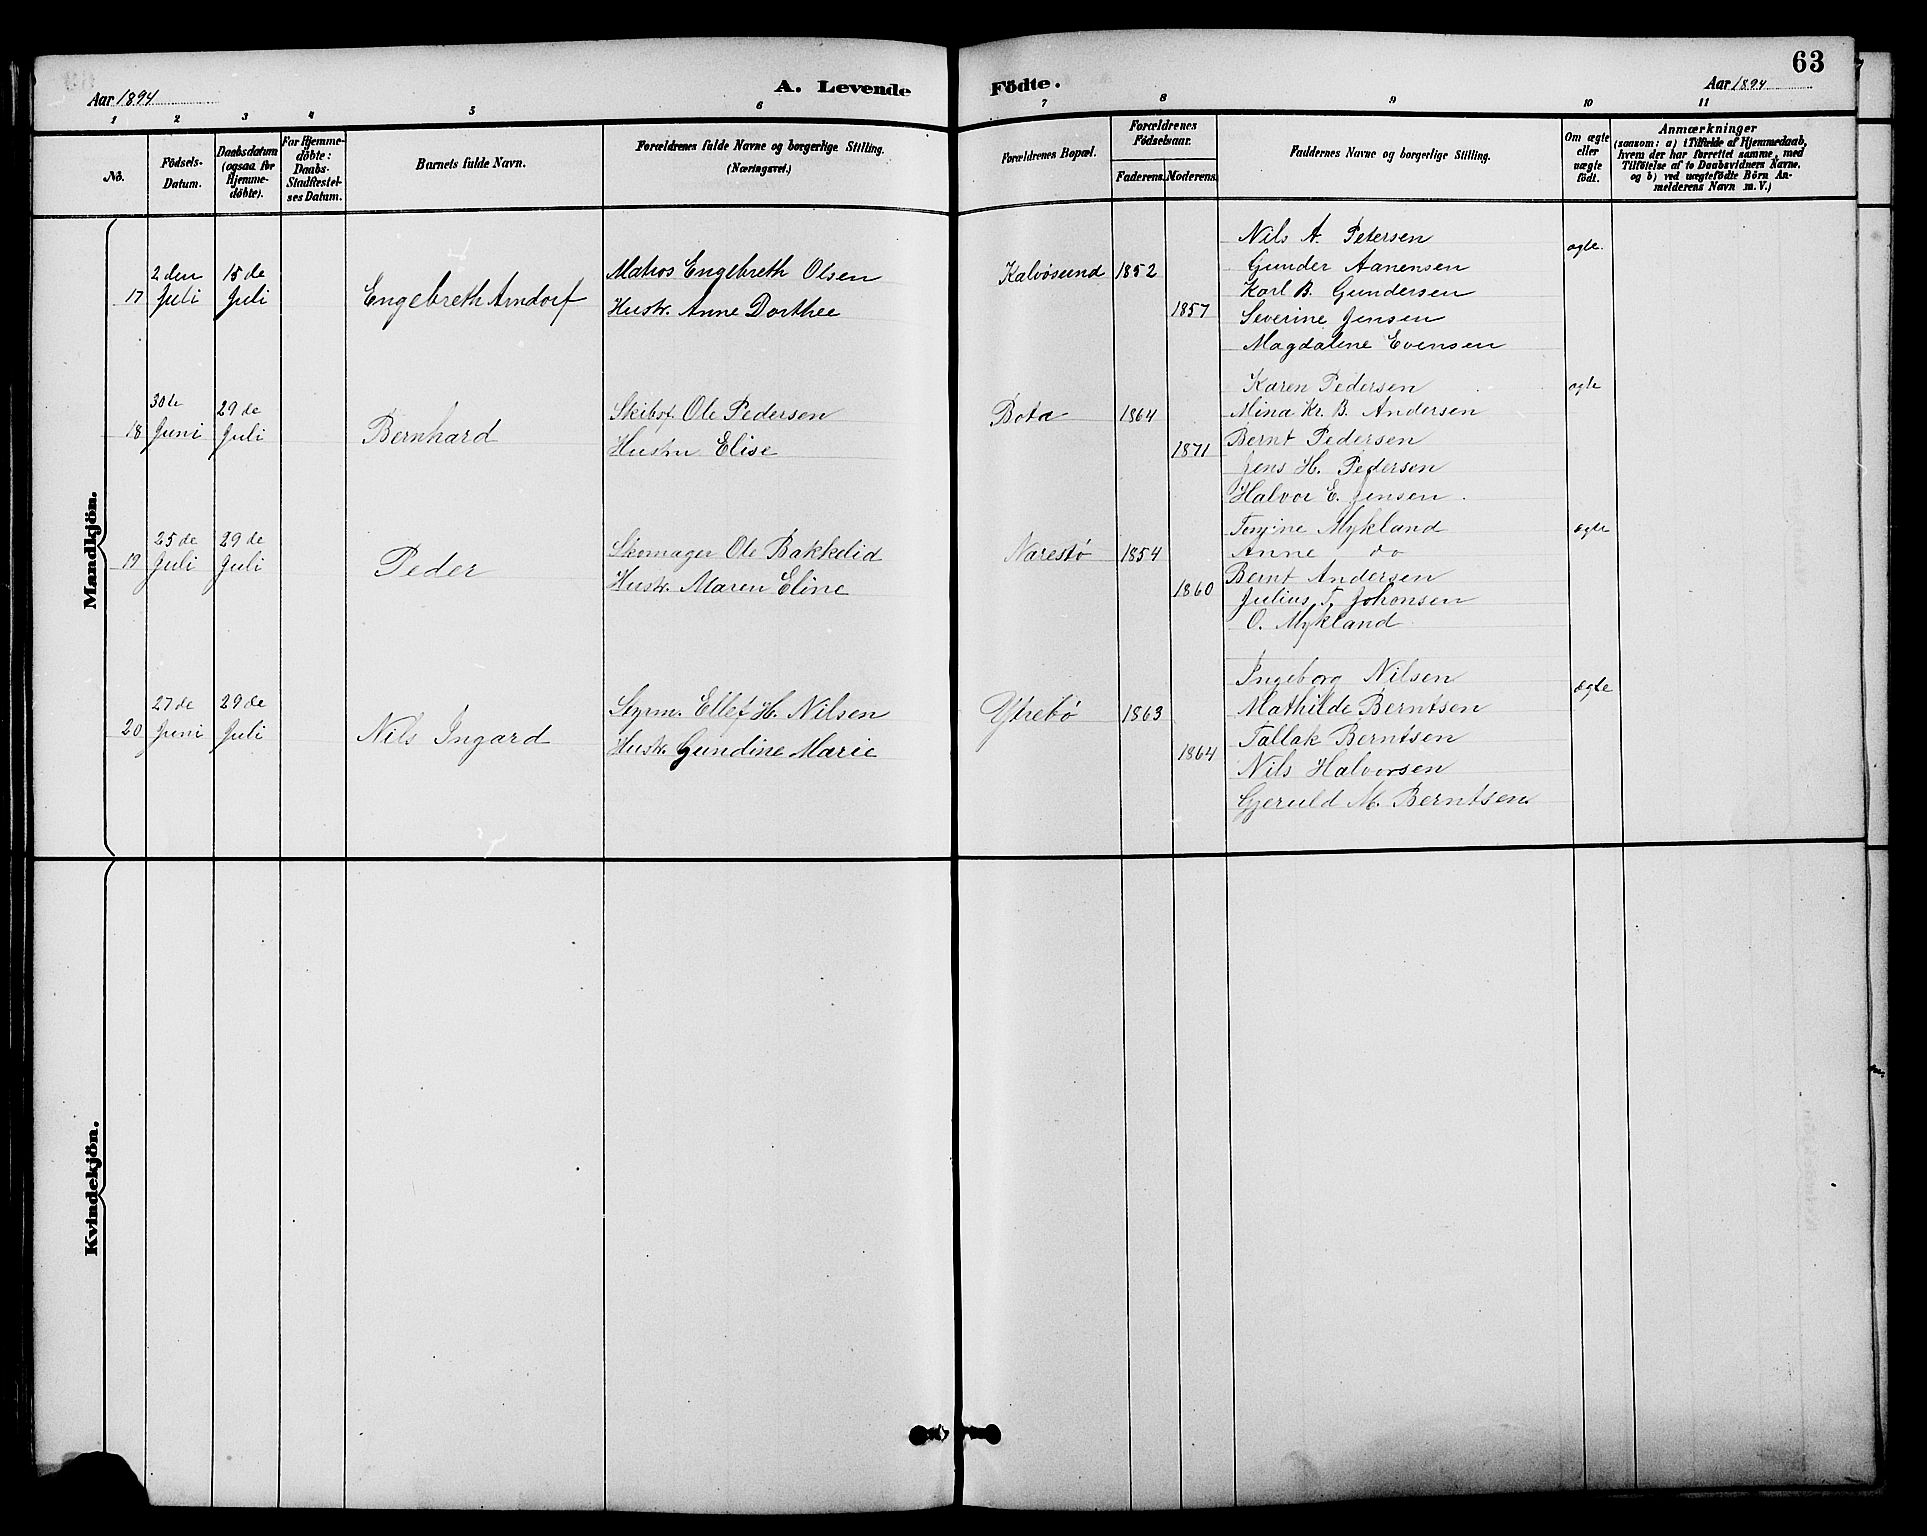 63
Aar 1894
A. Levende
Födte.
Aar 1894
1 2 3 4 5 6 7 8 9 10 11
No.
Födsels-
Datum.
Daabsdatum
(ogsaa for
Hjemme-
döbte).
For Hjemme-
döbte:
Daabs-
Stadfæstel-
ses Datum.
Barnets fulde Navn.
Forældrenes fulde Navne og borgerlige Stilling.
(Næringsvei.)
Forældrenes Bopæl.
Forældrenes
Födselsaar.
Faderens.
Moderens.
Faddernes Navne og borgerlige Stilling.
Om ægte
eller
uægte
födt.
Anmærkninger
(saasom: a) i Tilfælde af Hjemmedaab,
hvem der har forrettet samme, med
Tilföielse af to Daabsvidners Navne.
og b) ved uægtefödte Börn An-
melderens Navn m. V.)
Mandkjön.
17
2 den
Juli
15 de
Juli
Engebreth Arndorf
Matros Engebreth Olsen
Hustr. Anne Dorthee
Kalvøsund
1852
1857
Nils A. Petersen
Gunder Aanensen
Karl B. Gundersen
Severine Jensen
Magdalene Evensen
ægte.
18
30te
Juni
29 de
Juli
Bernhard
Skibsf. Ole Pedersen
Hustru Elise
Bota
1864
1871
Karen Pedersen
Mina Kr. B. Andersen
Bernt Pedersen
Jens H. Pedersen
Halvor E. Jensen.
ægte
19
25 de
Juli
29 de
Juli
Peder
Skomager Ole Bakkelid
Hustr. Maren Eline
Narestø
1854
1860
Terjine Mykland
Anne do
Bernt Andersen
Julius T. Johonsen
O. Mykland
ægte
20
27 de
Juni
29 de
Juli
Nils Ingard
Styrm. Ellef H. Nilsen
Hustr. Gundine Marie
Ytrebø
1863
1864
Ingeborg Nilsen
Mathilde Berntsen
Tallak Berntsen
Nils Halvorsen
Gjeruld M. Berntsen
ægte
Kvindekjön.